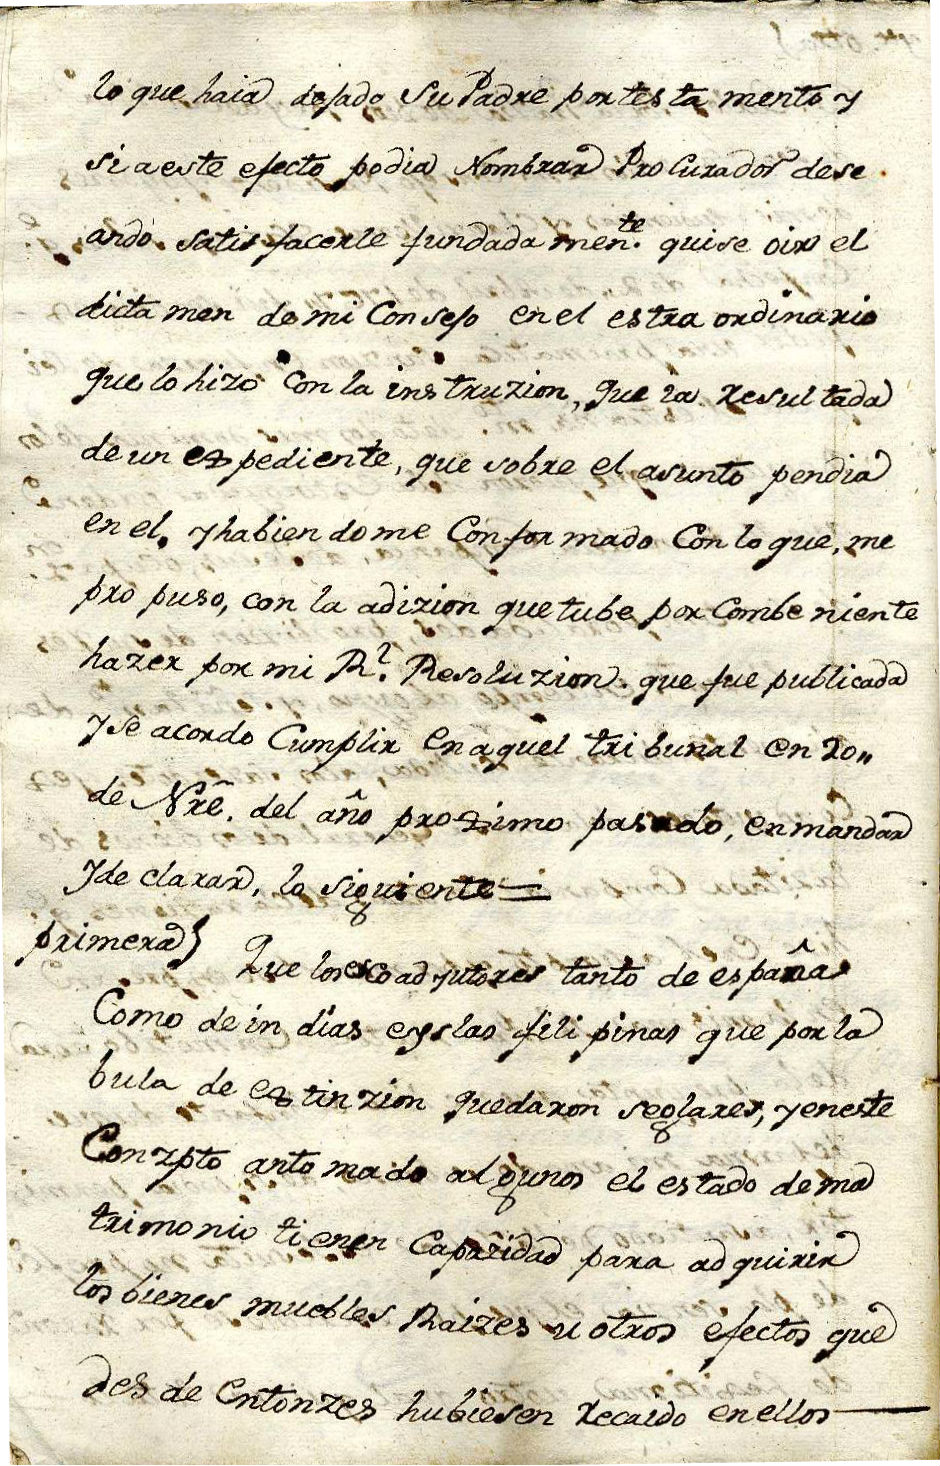 lo que haia dejado Su Padre por testa mento y
si a este efecto podia Nombrar ProCurador dese
ando satis facerle fundada men.te quise oir el
dicta men de mi Consejo en el estra ordinario
que lo hizo Con la instruzion, que la Resultada
de un expediente, que sobre el asunto pendia
en el, y habien do me Confor mado Con lo que, me
pro puso, con la adizion que tube por Combe niente
hazer por mi Rl. Resoluzion. que fue publicada
y se acordo Cumplir en aquel tri bunal en 20,,
de Nre. del año proximo pasado, en mandar
y de clarar, lo siguiente =
primera} Que los coadyutores tanto de españa
Como de in dias e yslas fili pinas que por la
bula de extinzion quedaron seglares, y en este
Conzpto an to mado algunos el estado de ma
trimonio tienen Capazidad para ad quirir
los bienes muebles Raizes u otros efectos que
des de entonzes hubiesen Recaido en ellos